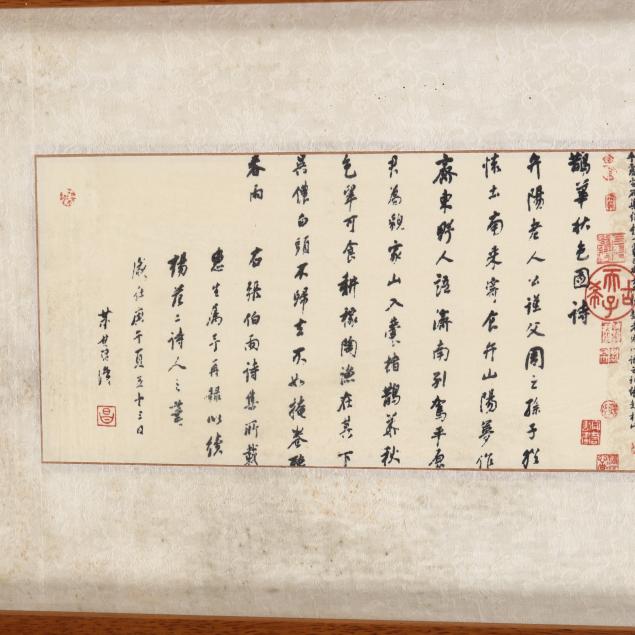 鵲華秋色圖詩
弁陽老人公謹父周之孫子猶
懷土南來寄食弁山陽夢作
齊東野人語濟南別駕平原
君為貌家山入囊楮鵲華秋
色翠可食耕稼陶漁在其下
吳儂白頭不歸去不如掩卷聽
春雨 右張伯雨詩集所載
惠生屬予再錄以續
楊范二詩人之筆
歲在庚午夏五十三日
董其昌
昌
古希天子